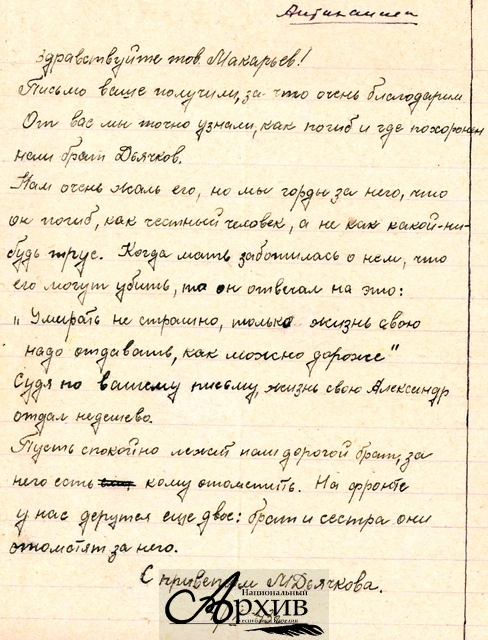 здравствуйте тов. Макарьев!
Письмо ваше получили, за что очень благодарим
От вас мы точно узнали, как погиб и где похоронен
наш брат Дьячков.
Нам очень жаль его, но мы горды за него, что
он погиб, как честный человек, а не как какой-ни-
будь трус. Когда мать заботилась о нем, что
его могут убить, то он отвечал на это:
„Умирать не страшно, только жизнь свою
надо отдавать, как можно дороже"
Судя по вашему письму, жизнь свою Александр
отдал недешево.
Пусть спокойно лежит наш дорогой брат, за
него есть кому отомстить. На фронте
у нас дерутся еще двое: брат и сестра они
отомстят за него.
С приветом М Дьячкова.
Национальный
Архив
Республики Карелия